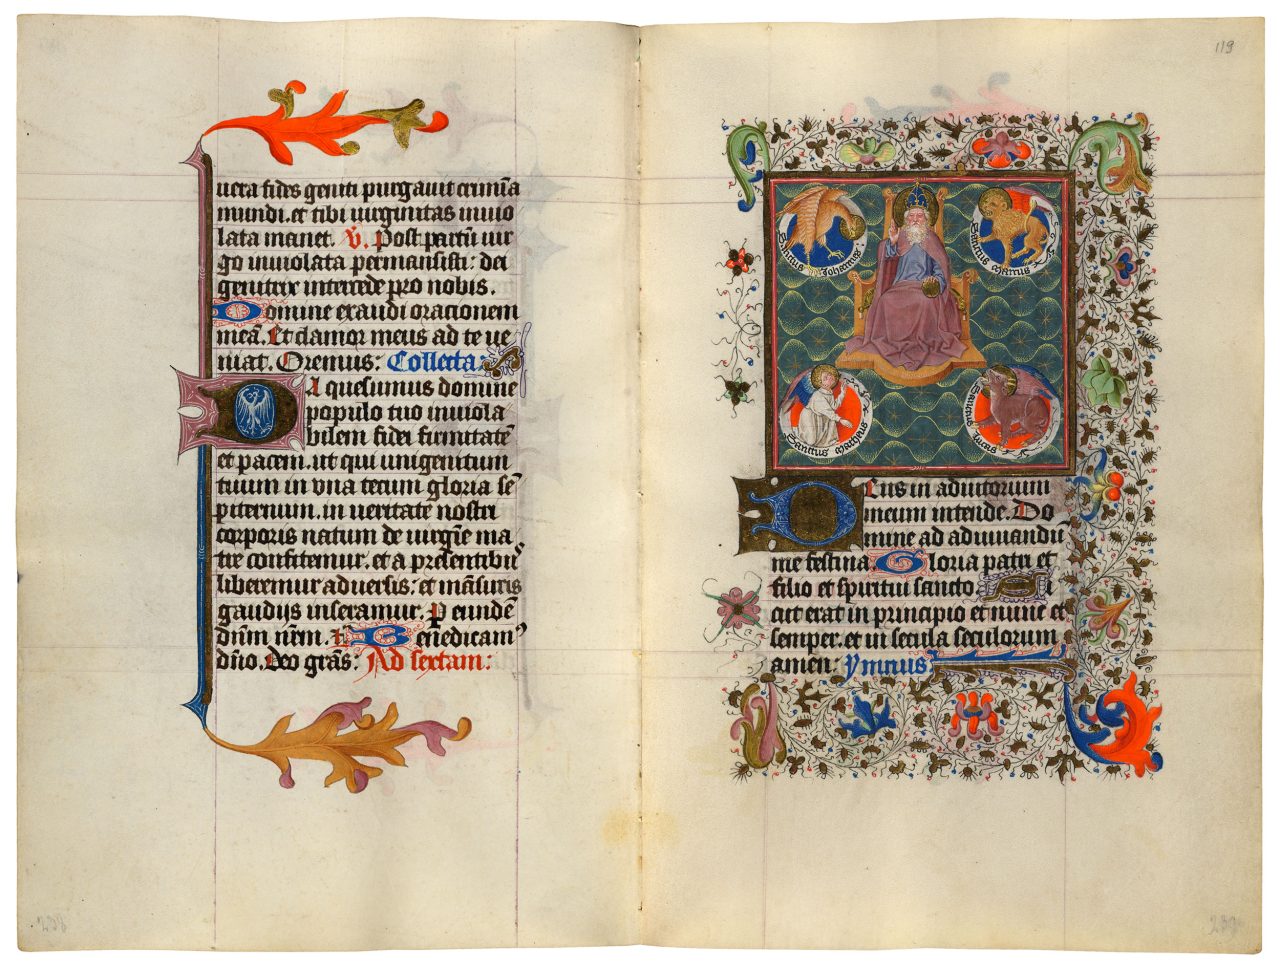 uera fides geniti purgauit crimīa
mundi. et tibi uirginitas inuio
lata manet. V. Post partū uir
go inuiolata permansisti: dei
genitrix intercede pro nobis.
Domine exaudi orationem
meā. Et clamor meus ad te ue
niat. Oremus: Collecta:
DA quesumus domine
populo tuo inuiola
bilem fidei firmitatē
et pacem. ut qui unigenitum
tuum in una tecum gloria sē
piternum. in ueritate nostri
corporis natum de uirgīe ma
tre confitemur. et a presentibuˀ
liberemur aduersis: et māsuris
gaudiis inseramur. P eundē
dnm nrm. Benedicamˀ
dno. Deo grās: Ad sextam:
238
119
Sanctus Johannes
Sanctus Marcus
Sanctus Matheus
Sanctus Lucas
DEus in adiutorium
meum intende. Do
mine ad adiuuandū
me festina. Gloria patri et
filio et spiritui sancto Si
cut erat in principio et nunc et
semper. et in secula seculorum
amen: Ymnus